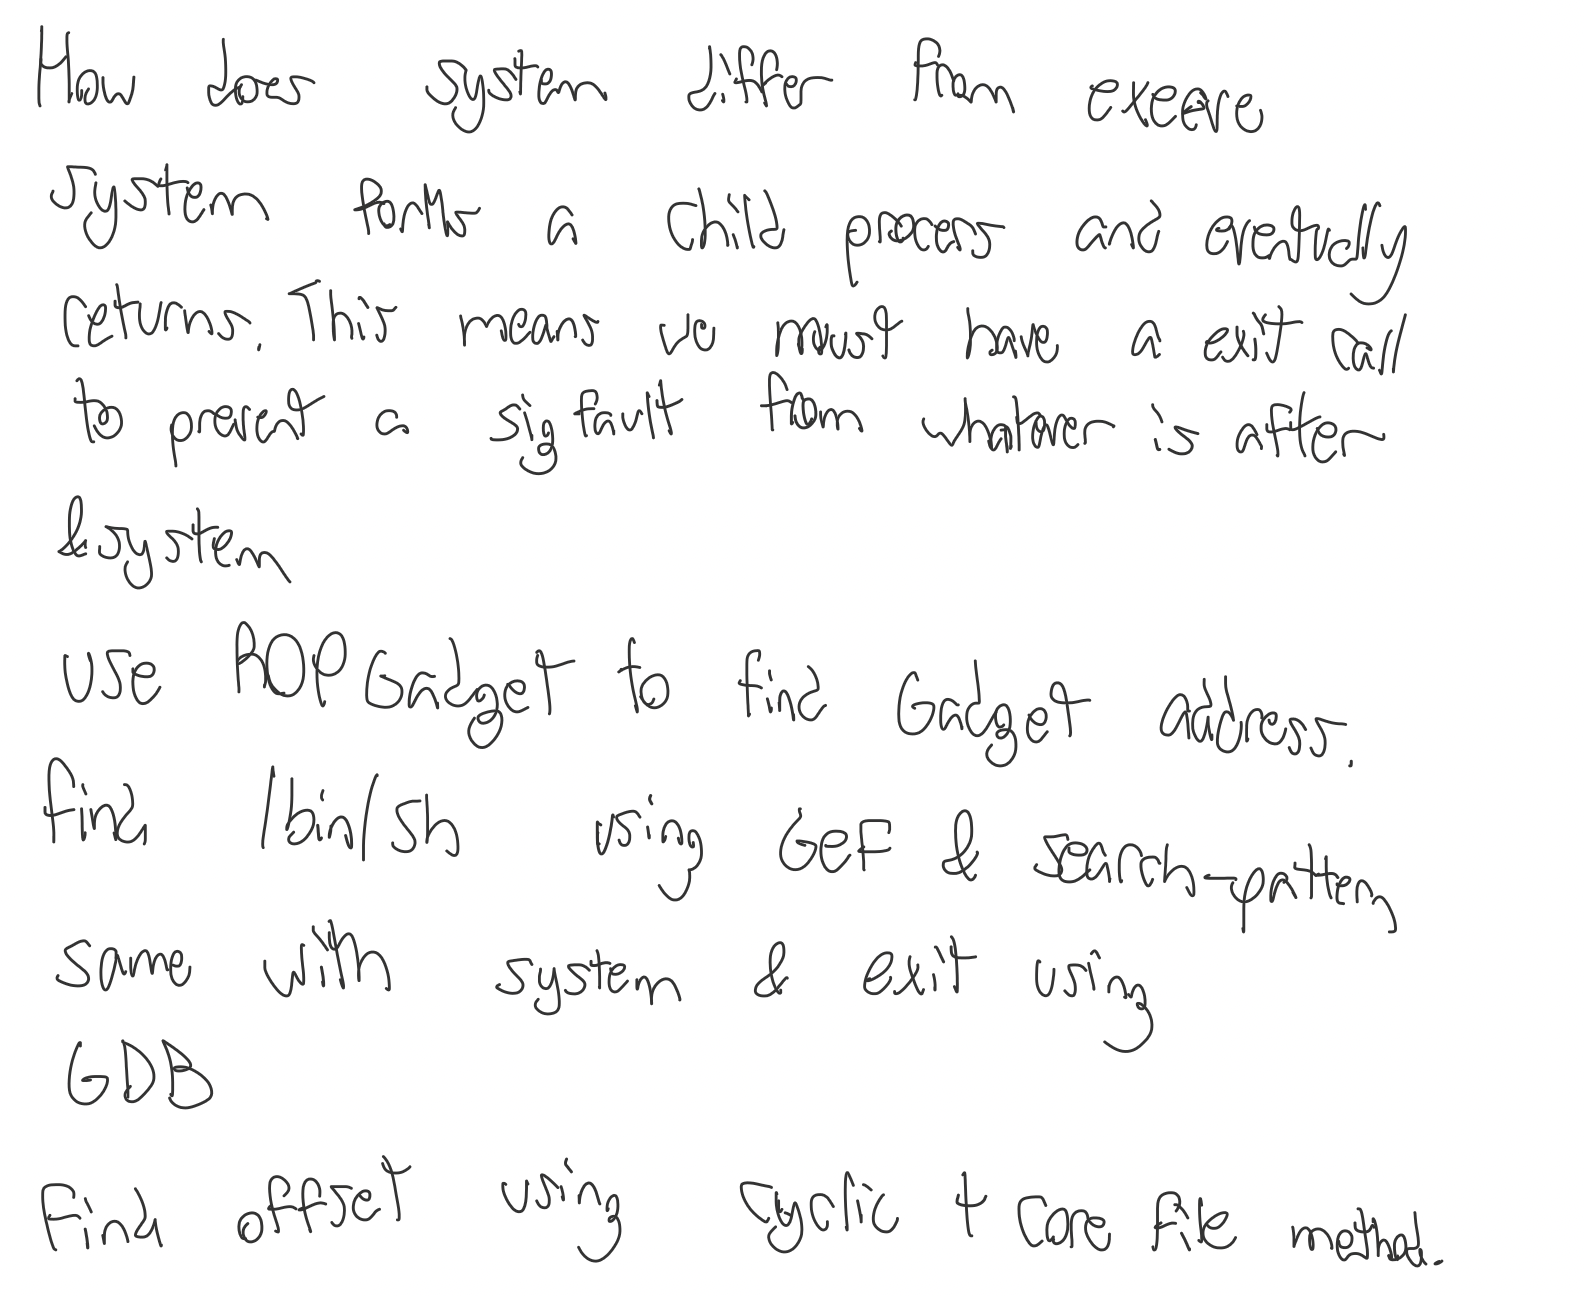 How does system differ from execve
system forks a child process and eventually
returns. This means we must have a exit call
to prevent a sig fault from whatever is after
&system
use ROPGadget to find Gadget address.
find /bin/sh using GEF & search-pattern
same with system & exit using
GDB
Find offset using cyclic + core file method.